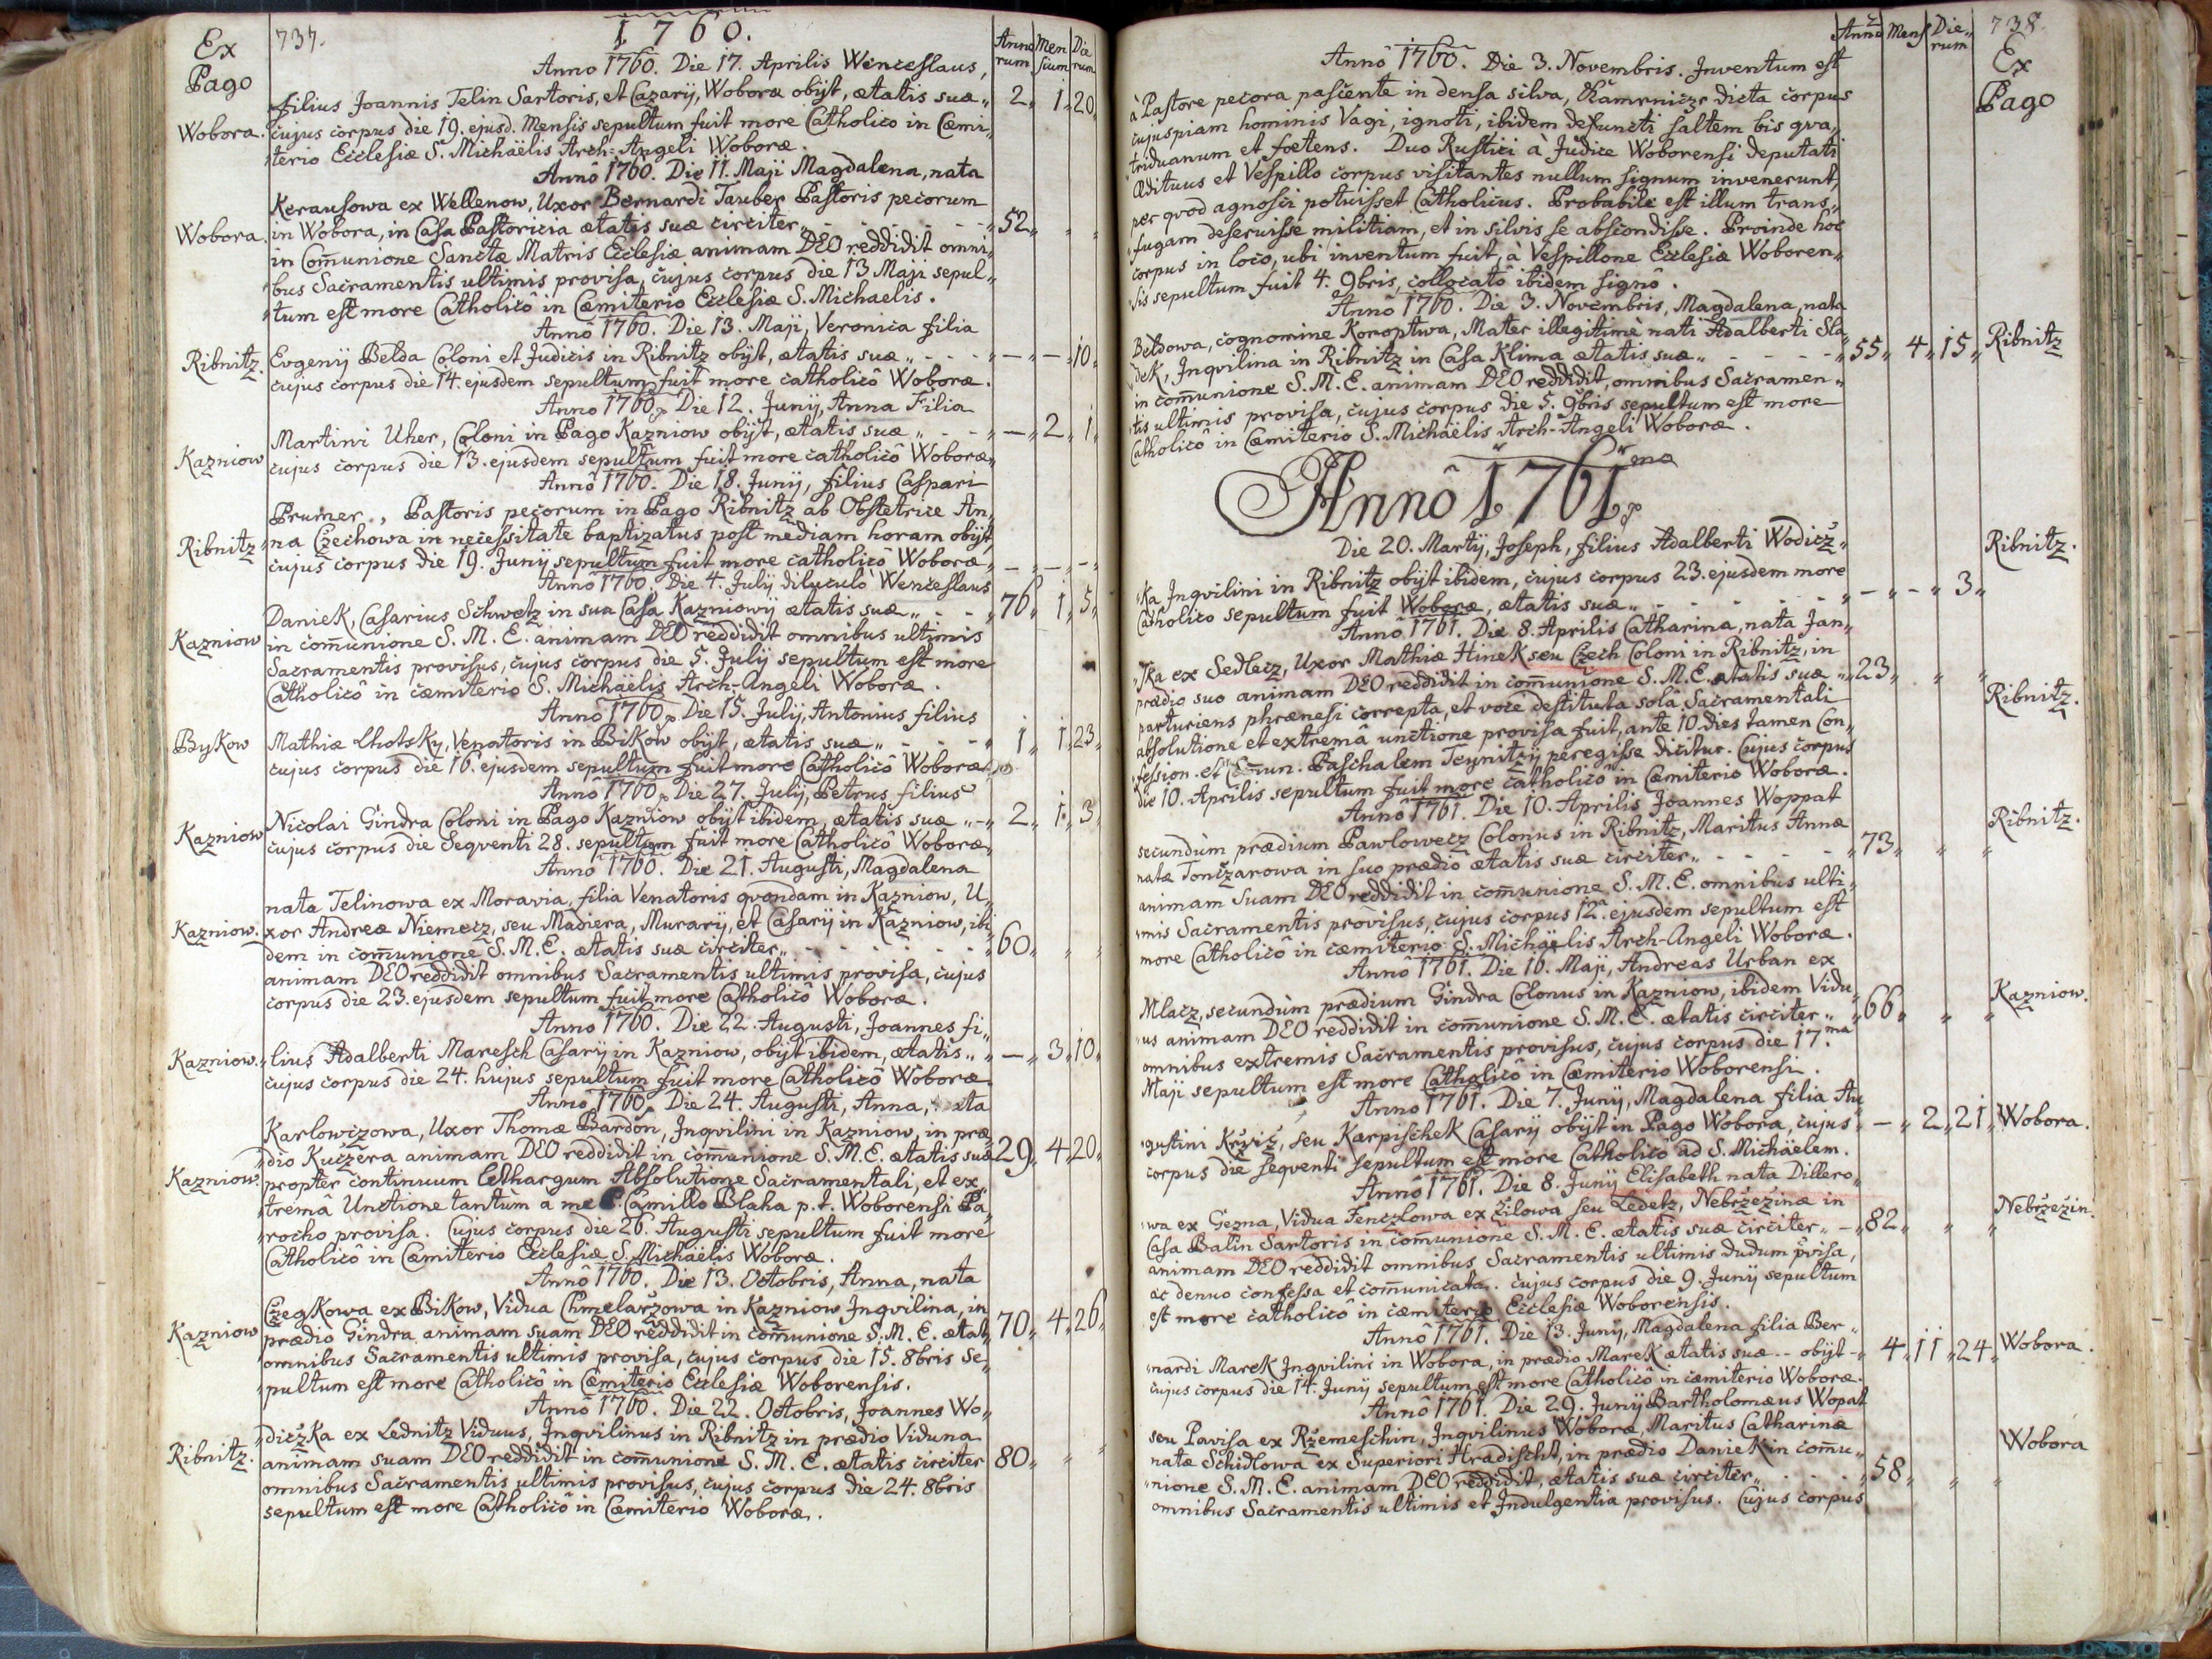 Ex
Pago
737.
1760.
Annorum
Mensium
Dierum
Anno 1760. Die 17. Aprilis Wenceslaus,
filius Joannis Telin Sartoris, et Cazarij, Woboræ obijt, ætatis suæ „ 2„ 1„ 20„
Wobora. cujus corpus die 19. ejusd. Mensis sepultum fuit more Catholico in Cæmi„
„terio Ecclesiæ S. Michaëlis Arch-Angeli Woboræ.
Annô 1760. Die 11. Maji Magdalena, nata
Kerausowa ex Wellenow, Uxor Bernardi Tauber Pastoris pecorum
Wobora. in Wobora, in Casa Pastoricia ætatis suæ circiter„ - - - - 52„ „ „
in Com̃unione Sanctæ Matris Ecclesiæ animam DEO reddidit omni„
„bus Sacramentis ultimis provisa, cujus corpus die 13 Maji sepul„
„tum est more Catholicô in Cæmiterio Ecclesiæ S. Michaelis.
Annô 1760. Die 13. Maji, Veronica filia
Ribnitz. Evgenij Belda Coloni et Judicis in Ribnitz obijt, ætatis suæ„ - - - „ — „ — „ 10„
cujus corpus die 14. ejusdem sepultum fuit more catholicô Woboræ.
Anno 1760. Die 12. Junij, Anna Filia
Kazniow Martini Uher, Coloni in Pago Kazniow obijt, ætatis suæ „ - - „ — „ 2„ 1„
cujus corpus die 13. ejusdem sepultum fuit more catholicô Woboræ„
Annô 1760. Die 18. Junij, filius Caspari
Prumer., Pastoris pecorum in Pago Ribnitz ab Obstetrice An„
Ribnitz „na Czechowa in necessitate baptizatus post mediam horam obijt,
cujus corpus die 19. Junij sepultum fuit more catholicô Woboræ„ — „ — „ - „
Annô 1760. Die 4. Julij diluculò Wenceslaus
Daniek, Casarius Schwetz in sua Casa Kazniowij ætatis suæ„ - - „ 76„ 1„ 5„
Kazniow in com̃unione S. M. E. animam DEO reddidit omnibus ultimis
Sacramentis provisus, cujus corpus die 5. Julij sepultum est more
Catholicô in cæmiterio S. Michäelis Arch-Angeli Woboræ.
Annô 1760. Die 15. Julij, Antonius filius
Bykow Mathiæ Lhotsky, Venatoris in Bikow obijt, ætatis suæ„ - - - „ 1„ 1„ 23„
cujus corpus die 16. ejusdem sepultum fuit more Catholicô Woboræ„
Annô 1760. Die 27. Julij, Petrus filius
Kazniow Nicolai Gindra Coloni in Pago Kazniow obijt ibidem, ætatis suæ „ - „ 2„ 1„ 3„
cujus corpus die Seqventi 28. sepultum fuit more Catholicô Woboræ„
Annô 1760. Die 21. Augusti, Magdalena
nata Telinowa ex Moravia, filia Venatoris qvondam in Kazniow, U„
Kazniow. „xor Andreæ Niemetz, seu Madiera, Murarij, et Casarij in Kazniow, ibi„
dem in com̃unione S. M. E. ætatis suæ circiter„ - - - - - „ 60„ „ „
animam DEO reddidit omnibus Sacramentis ultimis provisa, cujus
corpus die 23. ejusdem sepultum fuit more Catholicô Woboræ.
Anno 1760. Die 22. Augusti, Joannes fi„
Kazniow. „lius Adalberti Maresch Casarij in Kazniow, obijt ibidem, ætatis„ „ — „ 3„ 10„
cujus corpus die 24. hujus sepultum fuit more Catholicô Woboræ
Anno 1760. Die 24. Augusti, Anna, nata
Karlowizowa, Uxor Thomæ Bardon, Inqvilini in Kazniow, in præ„
„dio Kučzera animam DEO reddidit in com̃unione S. M. E. ætatis suæ 29„ 4„ 20„
Kazniow. propter continuum Lethargum Absolutione Sacramentali, et ex„
„tremâ Unctione tantùm a me P. Camillo Blaha p. t. Woborensi Pa„
„rocho provisa. Cujus corpus die 26. Augusti sepultum fuit more
Catholicô in Cæmiterio Ecclesiæ S. Michäelis Woboræ.
Annô 1760. Die 13. Octobris, Anna, nata
Czegkowa ex Bikow, Vidua Chmelaržowa in Kazniow Inqvilina, in
Kazniow prædio Gindra animam suam DEO reddidit in com̃unione S. M. E. ætat„ 70„ 4„ 26„
omnibus Sacramentis ultimis provisa, cujus corpus die 15. 8bris se„
„pultum est more Catholicô in Cæmiterio Ecclesiæ Woborensis.
Annô 1760. Die 22. Octobris, Joannes Wo„
„dičzka ex Lednitz Viduus, Inqvilinus in Ribnitz in prædio Viduna
Ribnitz. animam suam DEO reddidit in com̃unione S. M. E. ætatis circiter 80„ „ „
omnibus Sacramentis ultimis provisus, cujus corpus die 24. 8bris
sepultum est more Catholicô in Cæmiterio Woboræ.
Anno
Mens
Dierum
738.
Ex
Pago
Annô 1760. Die 3. Novembris. Inventum est
à Pastore pecora pascente in densa silva, dicta corpus
cujuspiam hominis Vagi, ignoti, ibidem defuncti saltem bis qva„
„triduanum et foetens. Duo Rustici à Judice Woborensi deputati
Ædituus et Vespillo corpus visitantes nullum signum invenerunt,
per qvod agnosci potuisset Catholicus. Probabile est illum trans„
„fugam deseruisse militiam, et in silvis se abscondisse. Proinde hoc
corpus in loco, ubi inventum fuit, à Vespillone Ecclesiæ Woboren„
„sis sepultum fuit 4. 9bris, collocatô ibidem signô.
Annô 1760. Die 3. Novembris, Magdalena, nata
Beldowa, cognomine Koroptwa, Mater illegitimè nati Adalberti Sla„
„dek, Inqvilina in Ribnitz in Casa Klima ætatis suæ„ - - - - „ 55„ 4„ 15„ Ribnitz
in com̃unione S. M. E. animam DEO reddidit, omnibus Sacramen„
„tis ultimis provisa, cujus corpus die 5. 9bris sepultum est more
Catholicô in Cæmiterio S. Michäelis Arch-Angeli Woboræ.
Annô 1761mo
Die 20. Martij, Joseph, filius Adalberti Wodicž„
„ka Inqvilini in Ribnitz obijt ibidem, cujus corpus 23. ejusdem more Ribnitz.
Catholico sepultum fuit Woboræ, ætatis suæ„ - - - - „ — „ - „ 3„
Annô 1761. Die 8. Aprilis Catharina, nata Jan„
„ska ex Sedlecz, Uxor Mathiæ Hinek seu Czech Coloni in Ribnitz, in
prædio suo animam DEO reddidit in com̃unione S. M. E. ætatis suæ „ „ 23„ „ „
parturiens phrænesi correpta, et voce destituta solâ Sacramentali Ribnitz.
absolutione et extremâ unctione provisa fuit, ante 10. dies tamen Con„
„fession. et Com̃un. Paschalem Teynitzij peregisse dicitur. Cujus corpus
die 10. Aprilis sepultum fuit more catholicô in Cæmiterio Woboræ.
Annô 1761. Die 10. Aprilis Joannes Woppat
secundùm prædium Pawlowecz Colonus in Ribnitz, Maritus Annæ Ribnitz.
natæ Tončzarowa in suo prædiô ætatis suæ circiter„ - - - - „ 73„ „ „
animam suam DEO reddidit in com̃unione S. M. E. omnibus ulti„
„mis Sacramentis provisus, cujus corpus 12. ejusdem sepultum est
more Catholicô in cæmiterio S. Michäelis Arch-Angeli Woboræ.
Annô 1761. Die 16. Maji, Andreas Urban ex
Mlacz, secundùm prædium Gindra Colonus in Kazniow, ibidem Vidu„ Kazniow.
„us animam DEO reddidit in com̃unione S. M. E. ætatis circiter „ „ 66„ „ „
omnibus extremis Sacramentis provisus, cujus corpus die 17.ma
Maji sepultum est more Catholicô in Cæmiterio Woborensi.
Anno 1761. Die 7. Junij, Magdalena filia Au„
„gustini Kržiž, seu Karpischek Casarij obijt in Pago Wobora, cujus „ — „ 2„ 21„ Wobora.
corpus die seqventi sepultum est more Catholicô ad S. Michäelem.
Annô 1761. Die 8. Junij Elisabeth nata Dillero„
„wa ex Gezna, Vidua Fenczlowa ex Žilowa seu Ledetz, Nebržezinæ in Nebržezin.
Casa Balin Sartoris in com̃unione S. M. E. ætatis suæ circiter „ - „ 82„ „ „
animam DEO reddidit omnibus Sacramentis ultimis dudum p̃visa,
ac denuo confessa et com̃unicata. cujus corpus die 9. Junij sepultum
est more catholicô in cæmiterio Ecclesiæ Woborensis.
Annô 1761. Die 13. Junij, Magdalena filia Ber„
„nardi Marek Inqvilini in Wobora, in prædio Marek ætatis suæ - - obijt - „ 4„ 11„ 24„ Wobora.
cujus corpus die 14. Junij sepultum est more Catholicô in cæmiterio Woboræ.
Annô 1761. Die 29. Junij Bartholomæus Wopat
seu Pavisa ex Ržemeschin, Inqvilinus Woboræ, Maritus Catharinæ Wobora
natæ Schidlowa ex Superiori Hradischt, in prædio Daniek in com̃u„
„nione S. M. E. animam DEO reddidit, ætatis suæ circiter„ - - „ 58„ „ „
omnibus Sacramentis ultimis et Indulgentia provisus. Cujus corpus